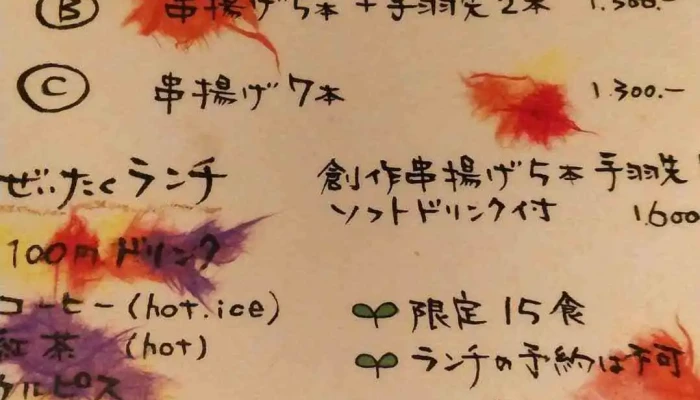 B 串揚げ5本+手羽先2本 1.300.-
C 串揚げ7本 1.300.-
ぜいたくランチ 創作串揚げ5本手羽先
ソフトドリンク付 1.600
100円ドリンク
コーヒー(hot.ice)
限定15食
紅茶 (hot)
ランチの予約は不可
カルピス